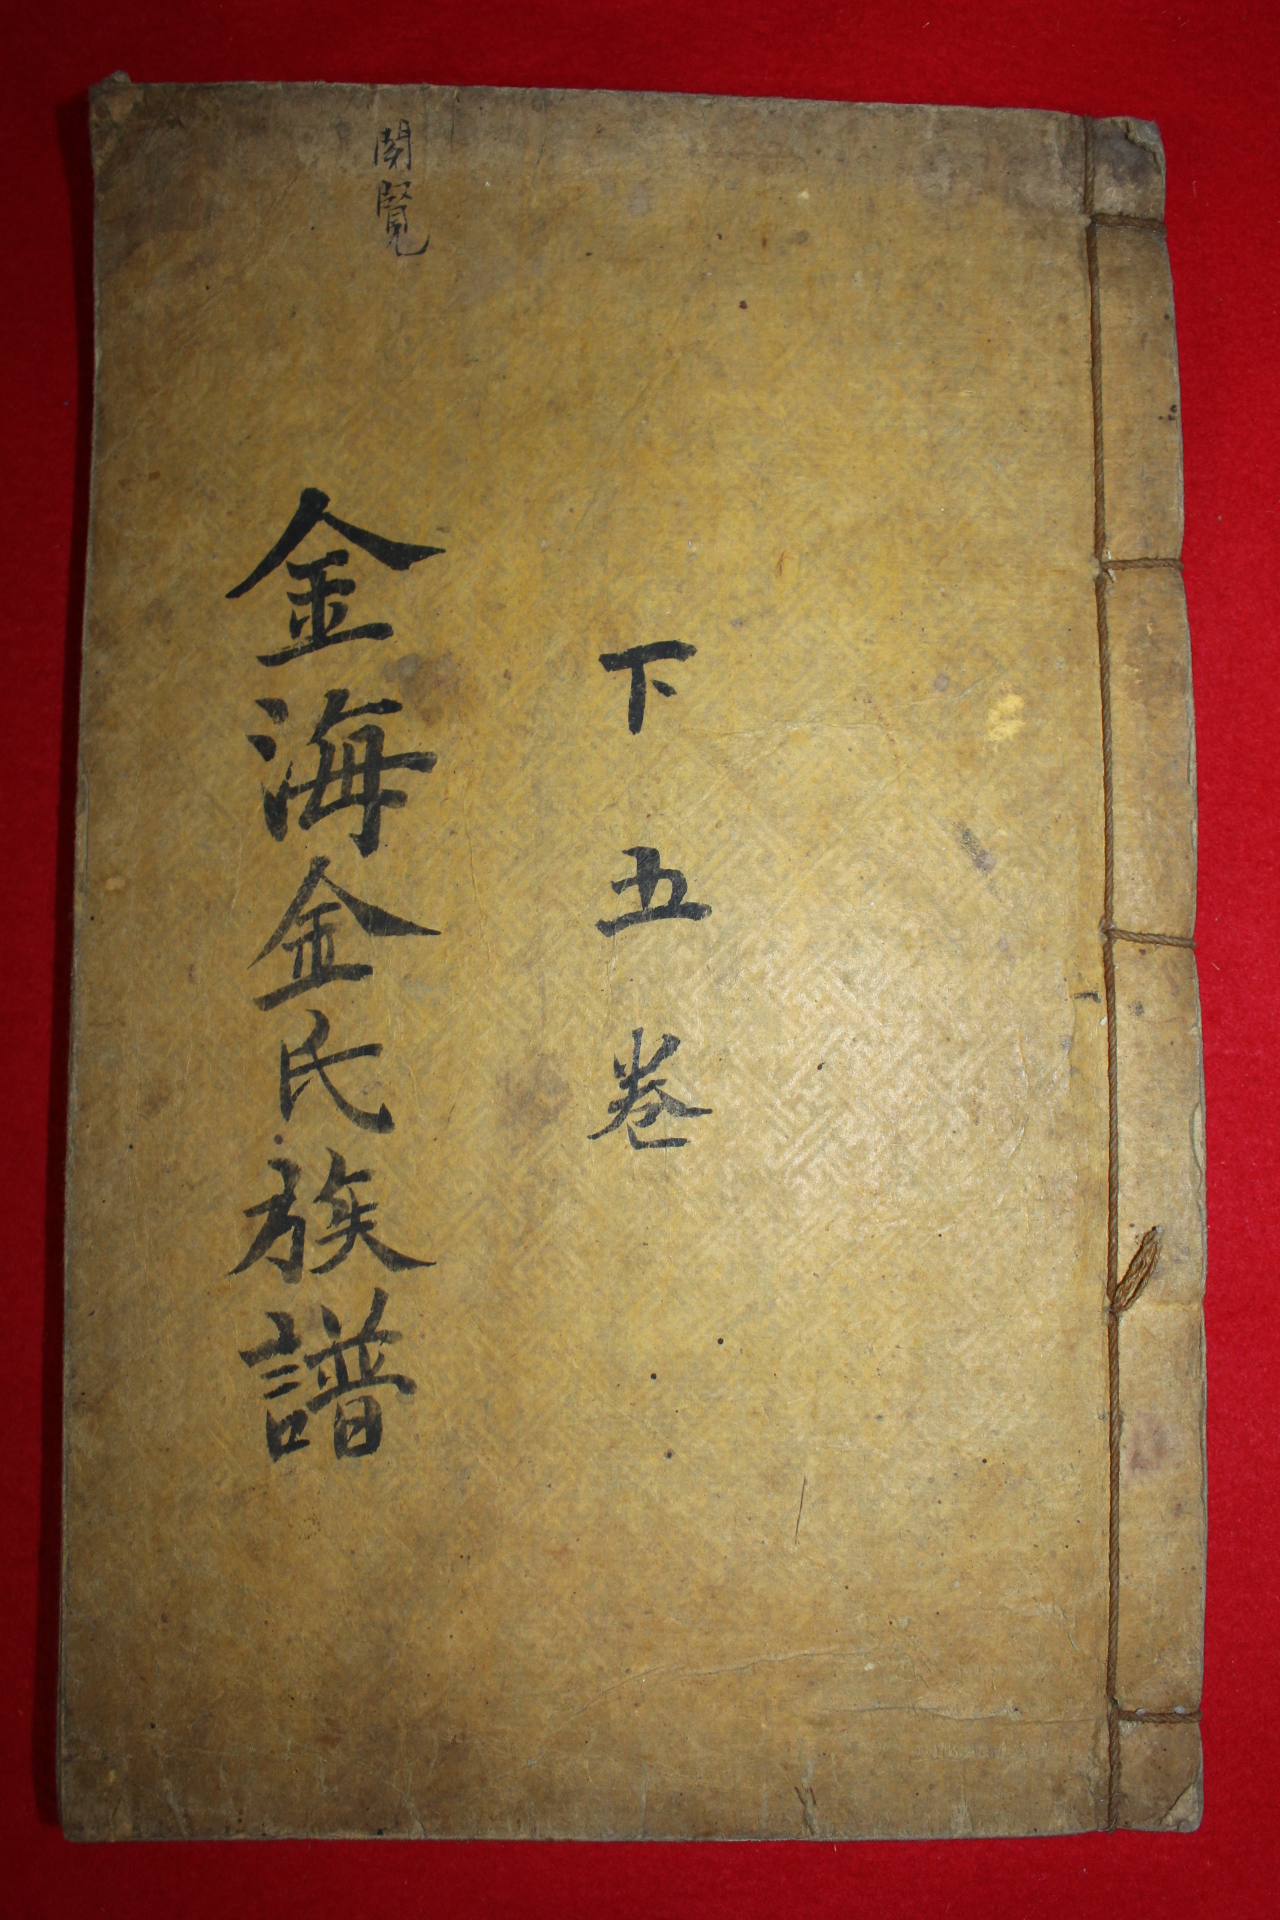 下五卷
閱覽
金海金氏族譜